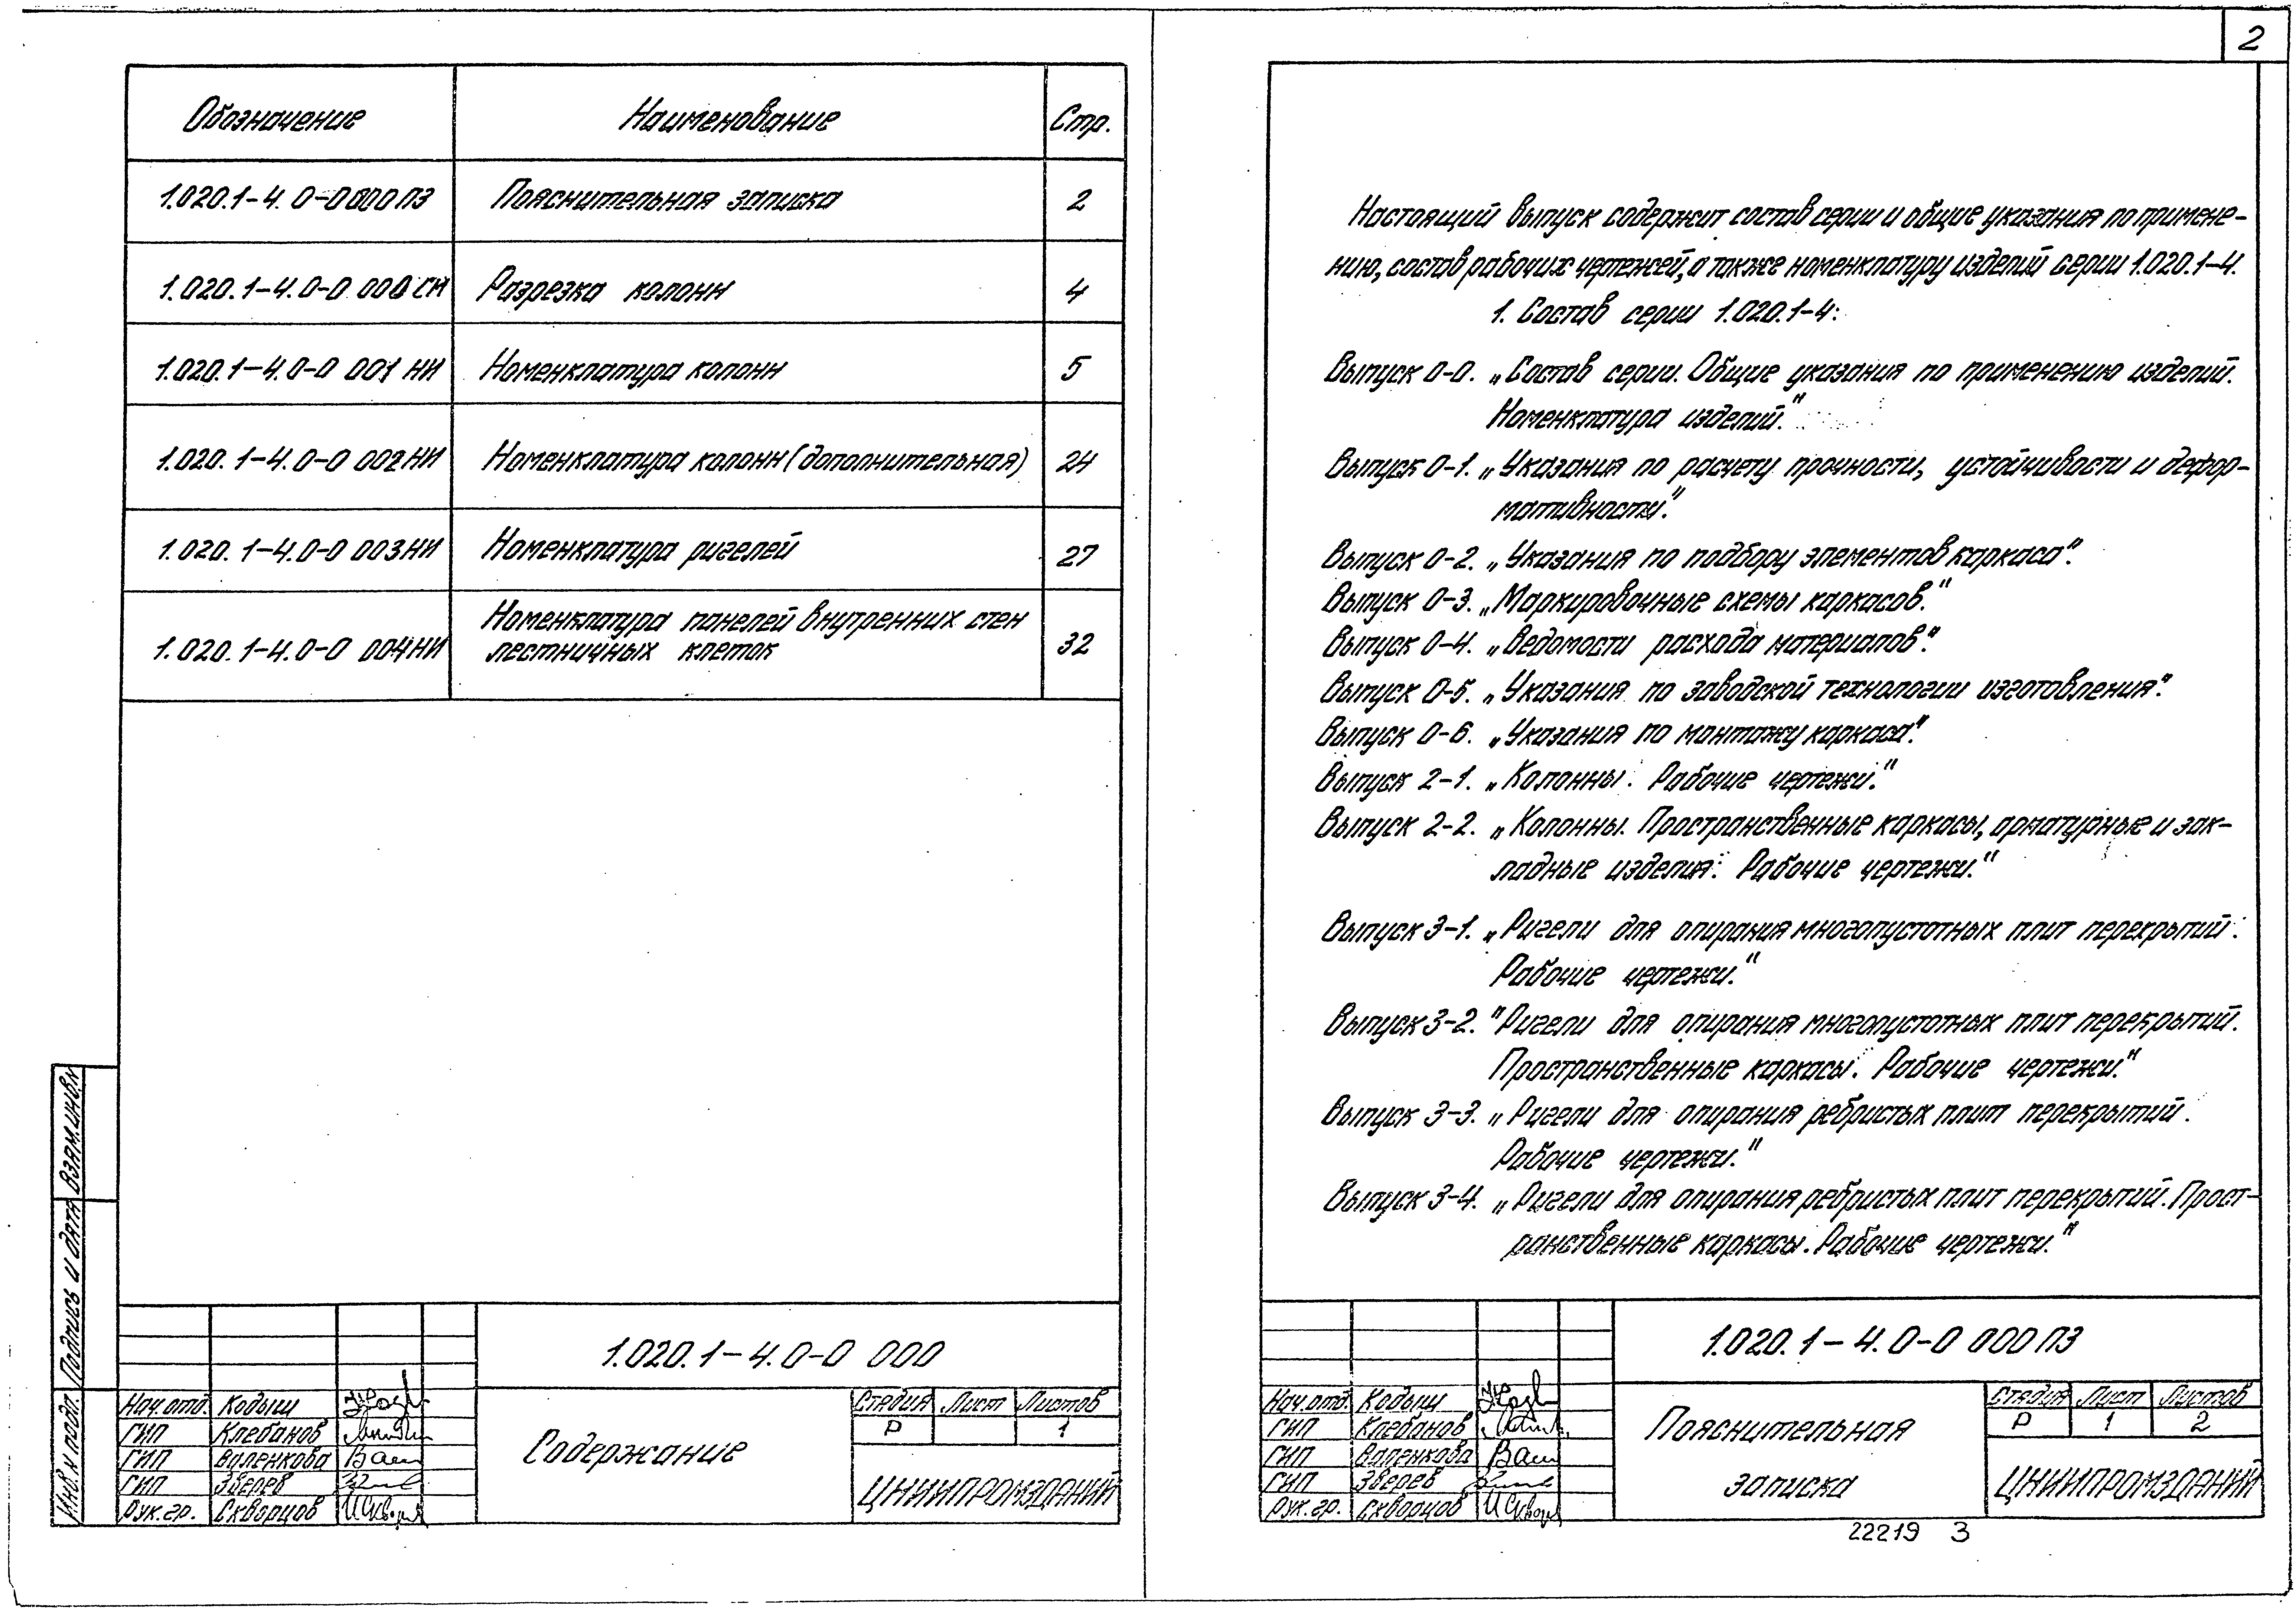 Обозначение Наименование Стр.
1.020.1-4.0-0 000 ПЗ Пояснительная записка 2
1.020.1-4.0-0 000 СМ Разрезка колонн 4
1.020.1-4.0-0 001 НИ Номенклатура колонн 5
1.020.1-4.0-0 002 НИ Номенклатура колонн (дополнительная) 24
1.020.1-4.0-0 003 НИ Номенклатура ригелей 27
Номенклатура панелей внутренних стен
1.020.1-4.0-0 004 НИ лестничных клеток 32
Взам.инв.н
Подпись и дата
Инв.н подл.
1.020.1-4.0-0 000
Нач.отд. Кодыш
ГИП Клебанов
ГИП Валенкова
ГИП Зверев
Рук.гр. Скворцов
Содержание
Стадия Лист Листов
Р 1
ЦНИИПРОМЗДАНИЙ
2
Настоящий выпуск содержит состав серии и общие указания по примене-
нию, состав рабочих чертежей, а также номенклатуру изделий серии 1.020.1-4.
1. Состав серии 1.020.1-4:
Выпуск 0-0. „Состав серии. Общие указания по применению изделий.
Номенклатура изделий."
Выпуск 0-1. „Указания по расчету прочности, устойчивости и дефор-
мативности".
Выпуск 0-2. „Указания по подбору элементов каркаса".
Выпуск 0-3. „Маркировочные схемы каркасов."
Выпуск 0-4. „Ведомости расхода материалов".
Выпуск 0-5. „Указания по заводской технологии изготовления".
Выпуск 0-6. „Указания по монтажу каркаса".
Выпуск 2-1. „Колонны. Рабочие чертежи."
Выпуск 2-2. „Колонны. Пространственные каркасы, арматурные и зак-
ладные изделия. Рабочие чертежи."
Выпуск 3-1. „Ригели для опирания многопустотных плит перекрытий.
Рабочие чертежи."
Выпуск 3-2. "Ригели для опирания многопустотных плит перекрытий.
Пространственные каркасы. Рабочие чертежи."
Выпуск 3-3. „Ригели для опирания ребристых плит перекрытий.
Рабочие чертежи."
Выпуск 3-4. „Ригели для опирания ребристых плит перекрытий. Прост-
ранственные каркасы. Рабочие чертежи."
1.020.1-4.0-0 000 ПЗ
Нач.отд. Кодыш
ГИП Клебанов
ГИП Валенкова
ГИП Зверев
Рук.гр. Скворцов
Пояснительная
записка
Стадия Лист Листов
Р 1 2
ЦНИИПРОМЗДАНИЙ
22219 3